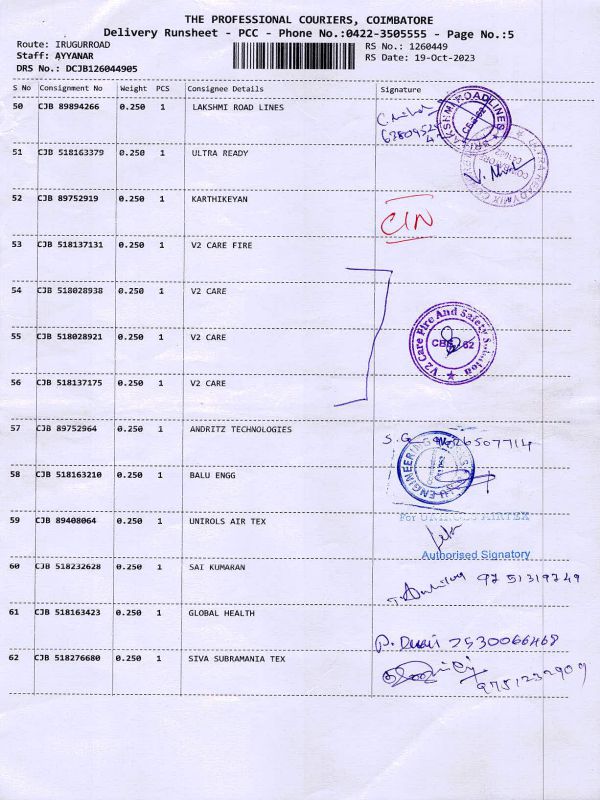 THE PROFESSIONAL COURIERS, COIMBATORE
Delivery Runsheet - PCC - Phone No.:0422-3505555 - Page No.:5
Route: IRUGURROAD
Staff: AYYANAR
DRS No.: DCJB126044905
RS No.: 1260449
RS Date: 19-Oct-2023
S No Consignment No Weight PCS Consignee Details Signature
50 CJB 89894266 0.250 1 LAKSHMI ROAD LINES
SRI LAKSHMI ROADLINES
CBE-62
51 CJB 518163379 0.250 1 ULTRA READY
ULTRA READY MIX
52 CJB 89752919 0.250 1 KARTHIKEYAN
CIN
53 CJB 518137131 0.250 1 V2 CARE FIRE
54 CJB 518028938 0.250 1 V2 CARE
55 CJB 518028921 0.250 1 V2 CARE
V2 Care Fire And Safety Solution
CBE 62
56 CJB 518137175 0.250 1 V2 CARE
57 CJB 89752964 0.250 1 ANDRITZ TECHNOLOGIES
S.G
58 CJB 518163210 0.250 1 BALU ENGG
ENGINEERING
59 CJB 89408064 0.250 1 UNIROLS AIR TEX
For UNIROLS AIRTEX
Authorised Signatory
60 CJB 518232628 0.250 1 SAI KUMARAN
97 51319749
61 CJB 518163423 0.250 1 GLOBAL HEALTH
7530066468
62 CJB 518276680 0.250 1 SIVA SUBRAMANIA TEX
9751232909